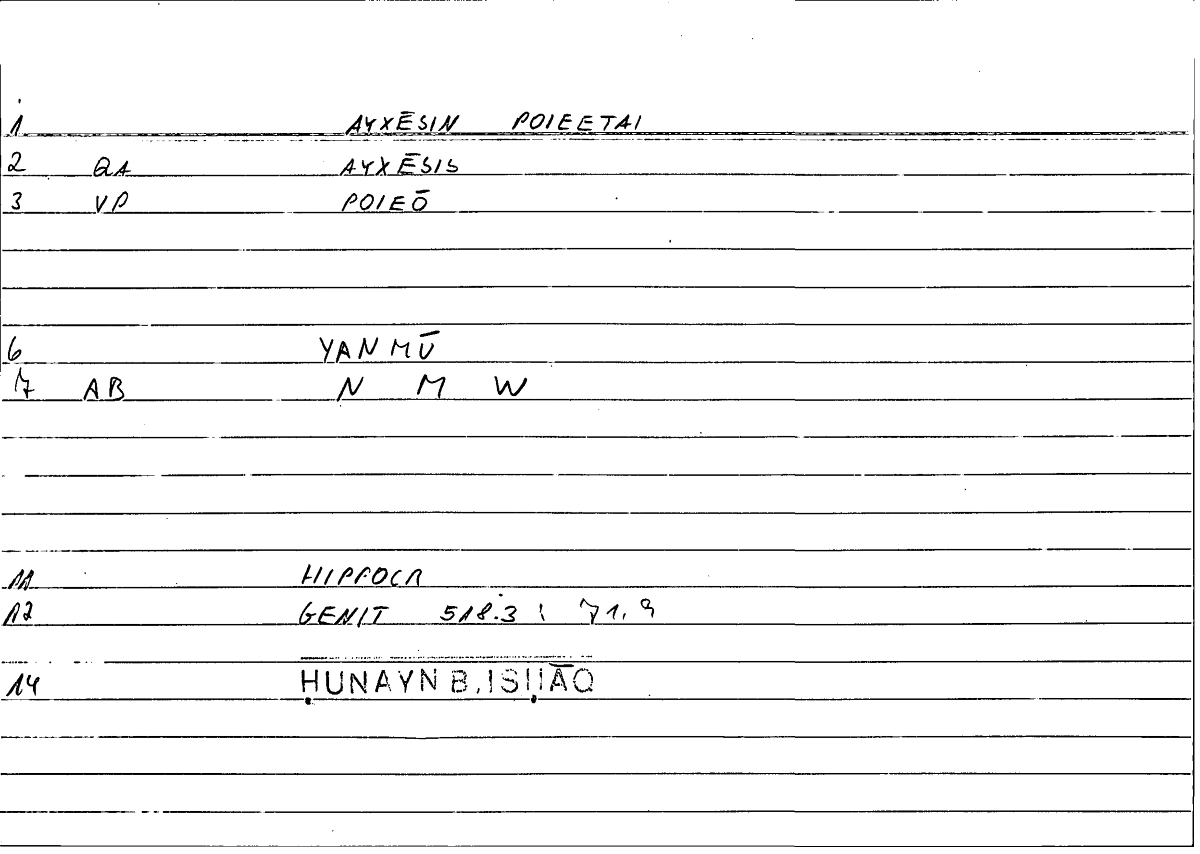 1 AYXĒSIN POIEETAI
2 QA AYXĒSIS
3 VP POIEŌ
6 YANMŪ
7 AB N M W
11 HIPPOCR
12 GENIT 518.3 ; 71.9
14 ḤUNAYN B.ISḤĀQ